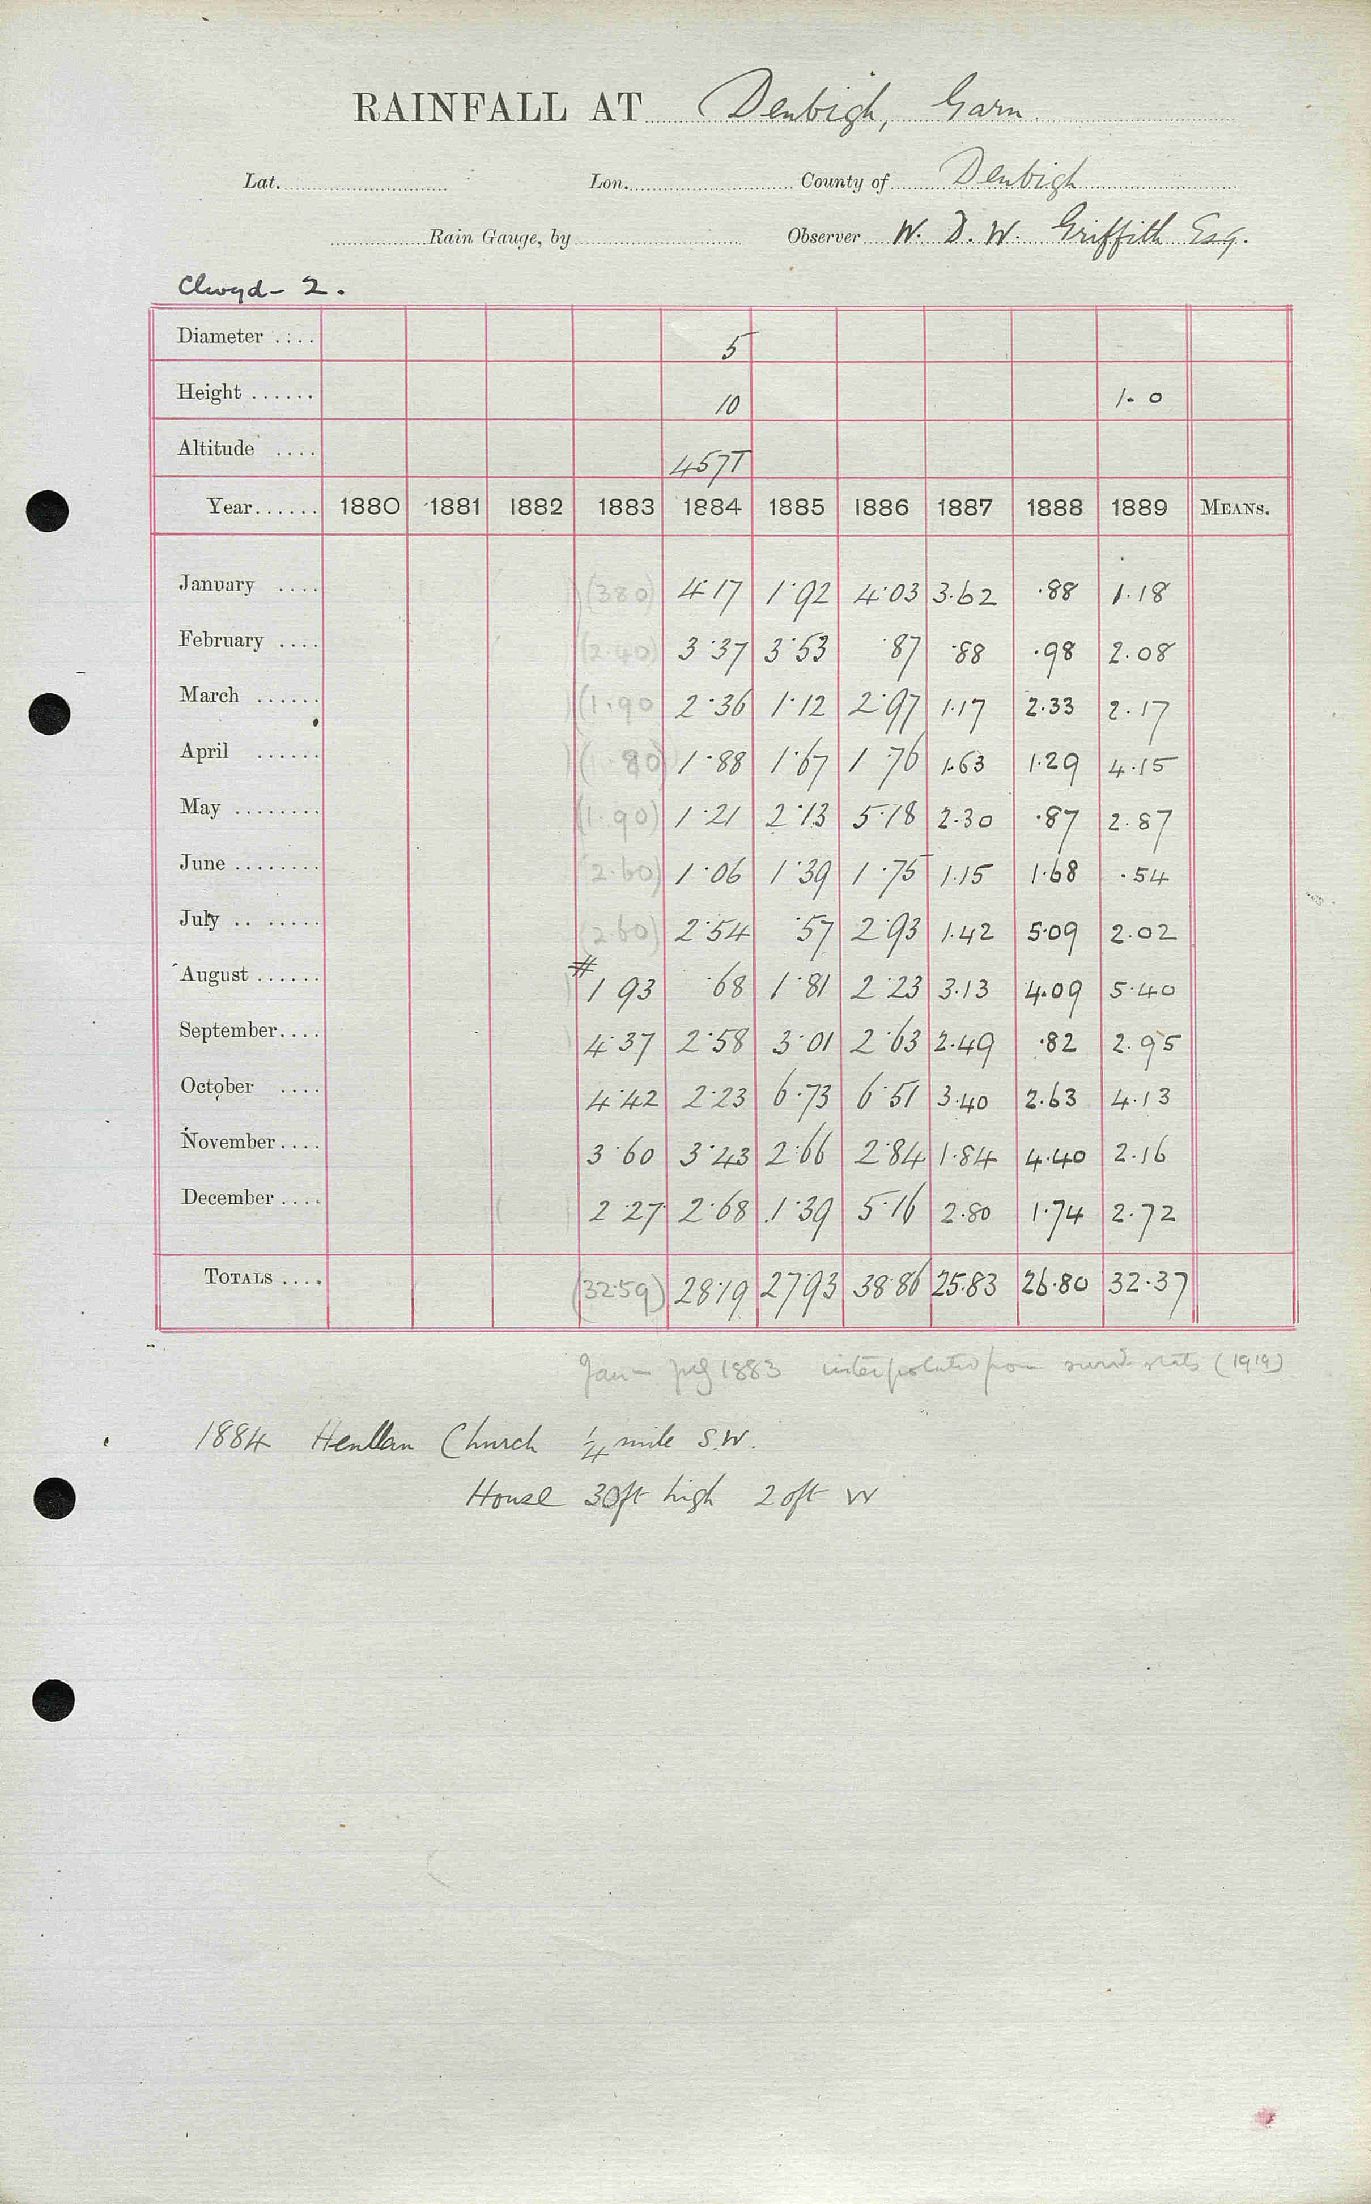 RAINFALL AT Denbigh, Garn
Lat. Lon. County of Denbigh
Rain Gauge, by Observer W. D. W. Griffith Esq.
Clwyd - 2.
Diameter .... 5
Height ...... 10 1.0
Altitude .... 457T
Year...... 1880 1881 1882 1883 1884 1885 1886 1887 1888 1889 MEANS.
January .... (3 80) 4.17 1.92 4.03 3.62 .88 1.18
February .... (2.40) 3.37 3.53 .87 .88 .98 2.08
March ...... (1.90 2.36 1.12 2.97 1.17 2.33 2.17
April ...... (1.80) 1.88 1.67 1 76 1.63 1.29 4.15
May ........ (1.90) 1.21 2.13 5.18 2.30 .87 2.87
June ........ 2.60) 1.06 1.39 1.75 1.15 1.68 .54
July .. ..... (2.60) 2.54 .57 2.93 1.42 5.09 2.02
August ...... # 1 93 .68 1.81 2.23 3.13 4.09 5.40
September.... 4.37 2.58 3.01 2.63 2.49 .82 2.95
October .... 4.42 2.23 6.73 6.51 3.40 2.63 4.13
November.... 3.60 3.43 2.66 2.84 1.84 4.40 2.16
December .... 2 27 2.68 1.39 5.16 2.80 1.74 2.72
TOTALS .... (32.59) 28.19 27.93 38.86 25.83 26.80 32.37
Jan - July 1883 interpolated from surrd. stats (1919)
1884 Henllan Church 1/4 mile S.W.
House 30ft high 20ft W